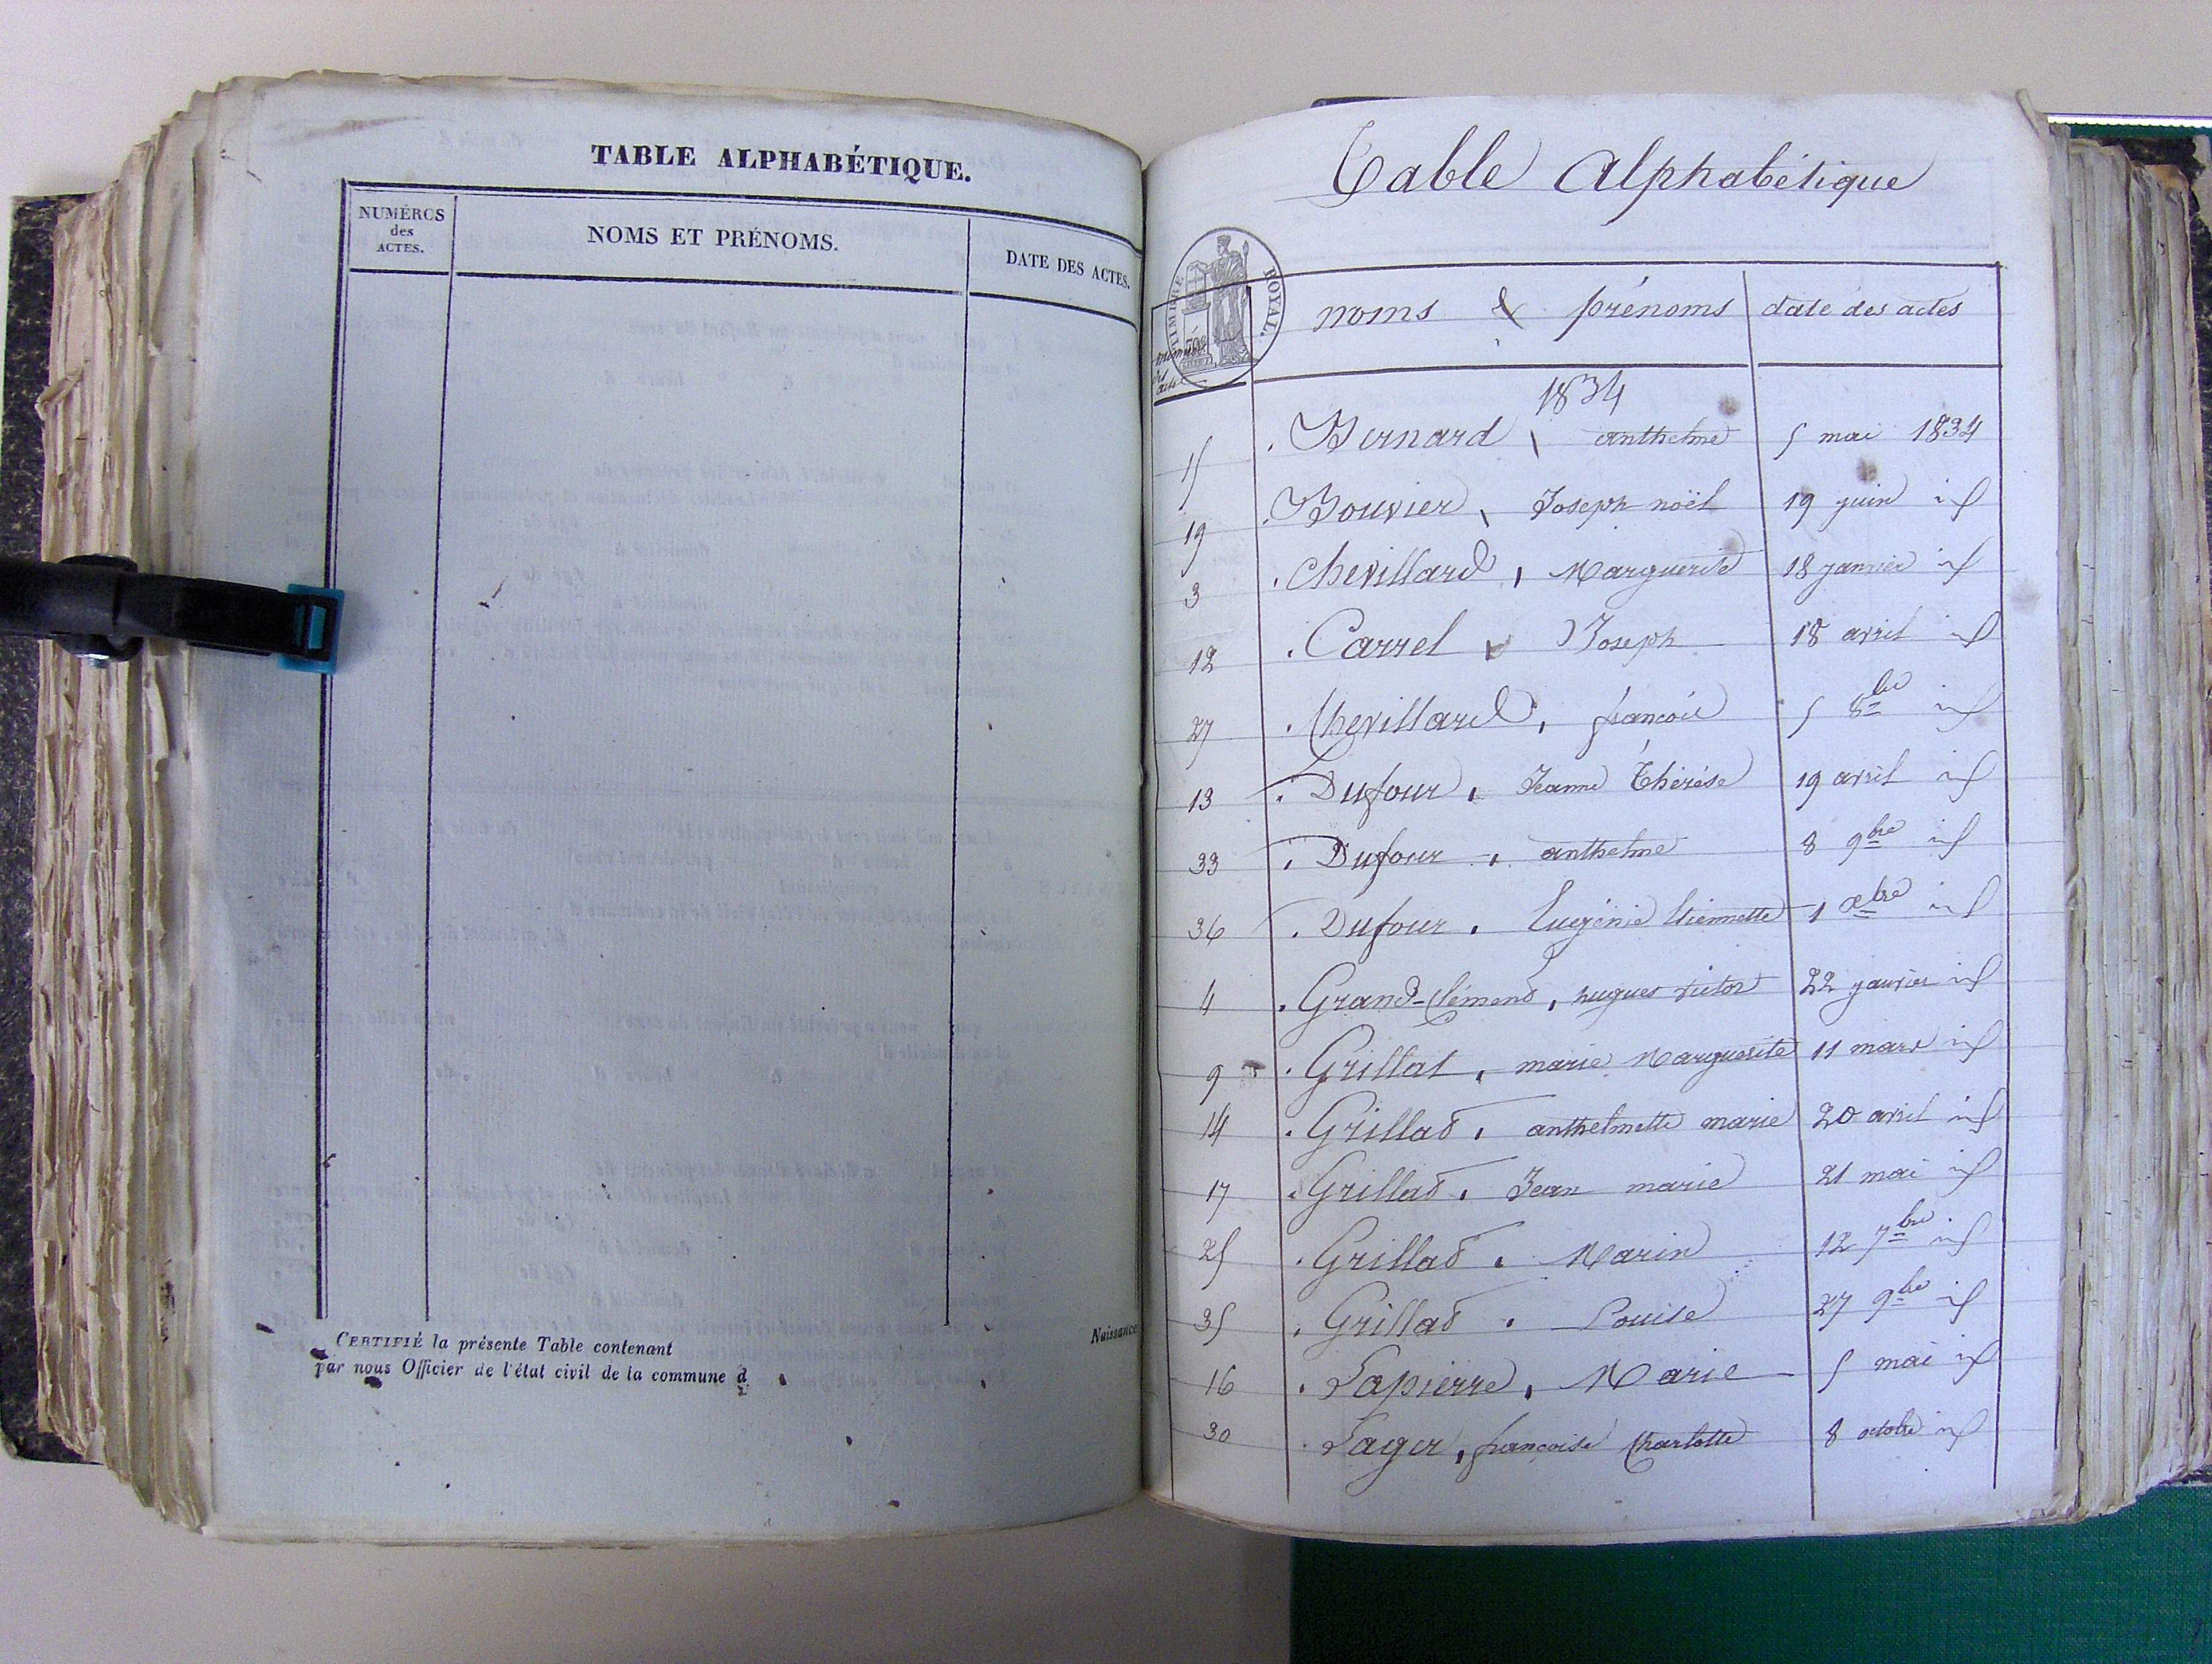 TABLE ALPHABÉTIQUE.
NUMÉROS
des
ACTES.
NOMS ET PRÉNOMS.
DATE DES ACTES.
CERTIFIÉ la présente Table contenant
Naissance
par nous Officier de l'état civil de la commune d
Table Alphabétique
TIMBRE ROYAL.
numéros
des
actes
noms & prénoms
date des actes
1834
15 Bernard, anthelme 5 mai 1834
19 Bouvier, Joseph noël 19 juin id
3 Chevillard, Marguerite 18 janvier id
12 Carrel, Joseph 18 avril id
27 Chevillard, françois 5 8bre id
13 Dufour, Jeanne Thérèse 19 avril id
33 Dufour, anthelme 8 9bre id
36 Dufour, Eugénie Etiennette 1 xbre id
4 Grand-Clémend, hugues victor 22 janvier id
9 Grillat, marie Marguerite 11 mars id
14 Grillad, anthelmette marie 20 avril id
17 Grillad, Jean marie 21 mai id
25 Grillad, Marin 12 7bre id
35 Grillad, Louise 27 9bre id
16 Lapierre, Marie 5 mai id
30 Lager, françoise Charlotte 8 octobre id